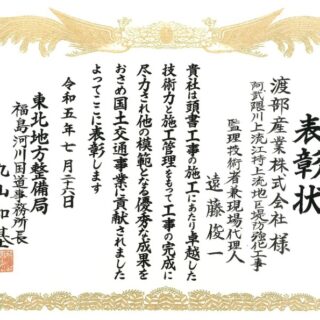 表彰状
渡部産業株式会社様
阿武隈川上流江持上流地区堤防強化工事
監理技術者兼現場代理人
遠藤俊一
貴社は頭書工事の施工にあたり卓越した
技術力と施工管理をもって工事の完成に
尽力され他の模範となる優秀な成果を
おさめ国土交通事業に貢献されました
よってここに表彰します
令和五年七月二十六日
東北地方整備局
福島河川国道事務所長
丸山和基